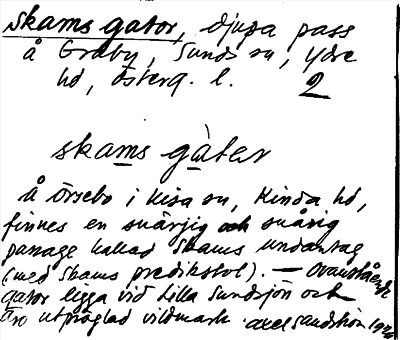 skams gator, djupa pass
å Gröby, Sunds sn, Ydre
hd, Österg. l. 2
skams gàter
Å Örsebo i Kisa sn, Kinda hd,
finnes en snårjig och snårig
passage kallad Skams undantag
(med Skams predikstol). — Ovanstående
gator ligga vid Lilla Sundsjön och
äro utpräglad vildmark. Axel Sandström